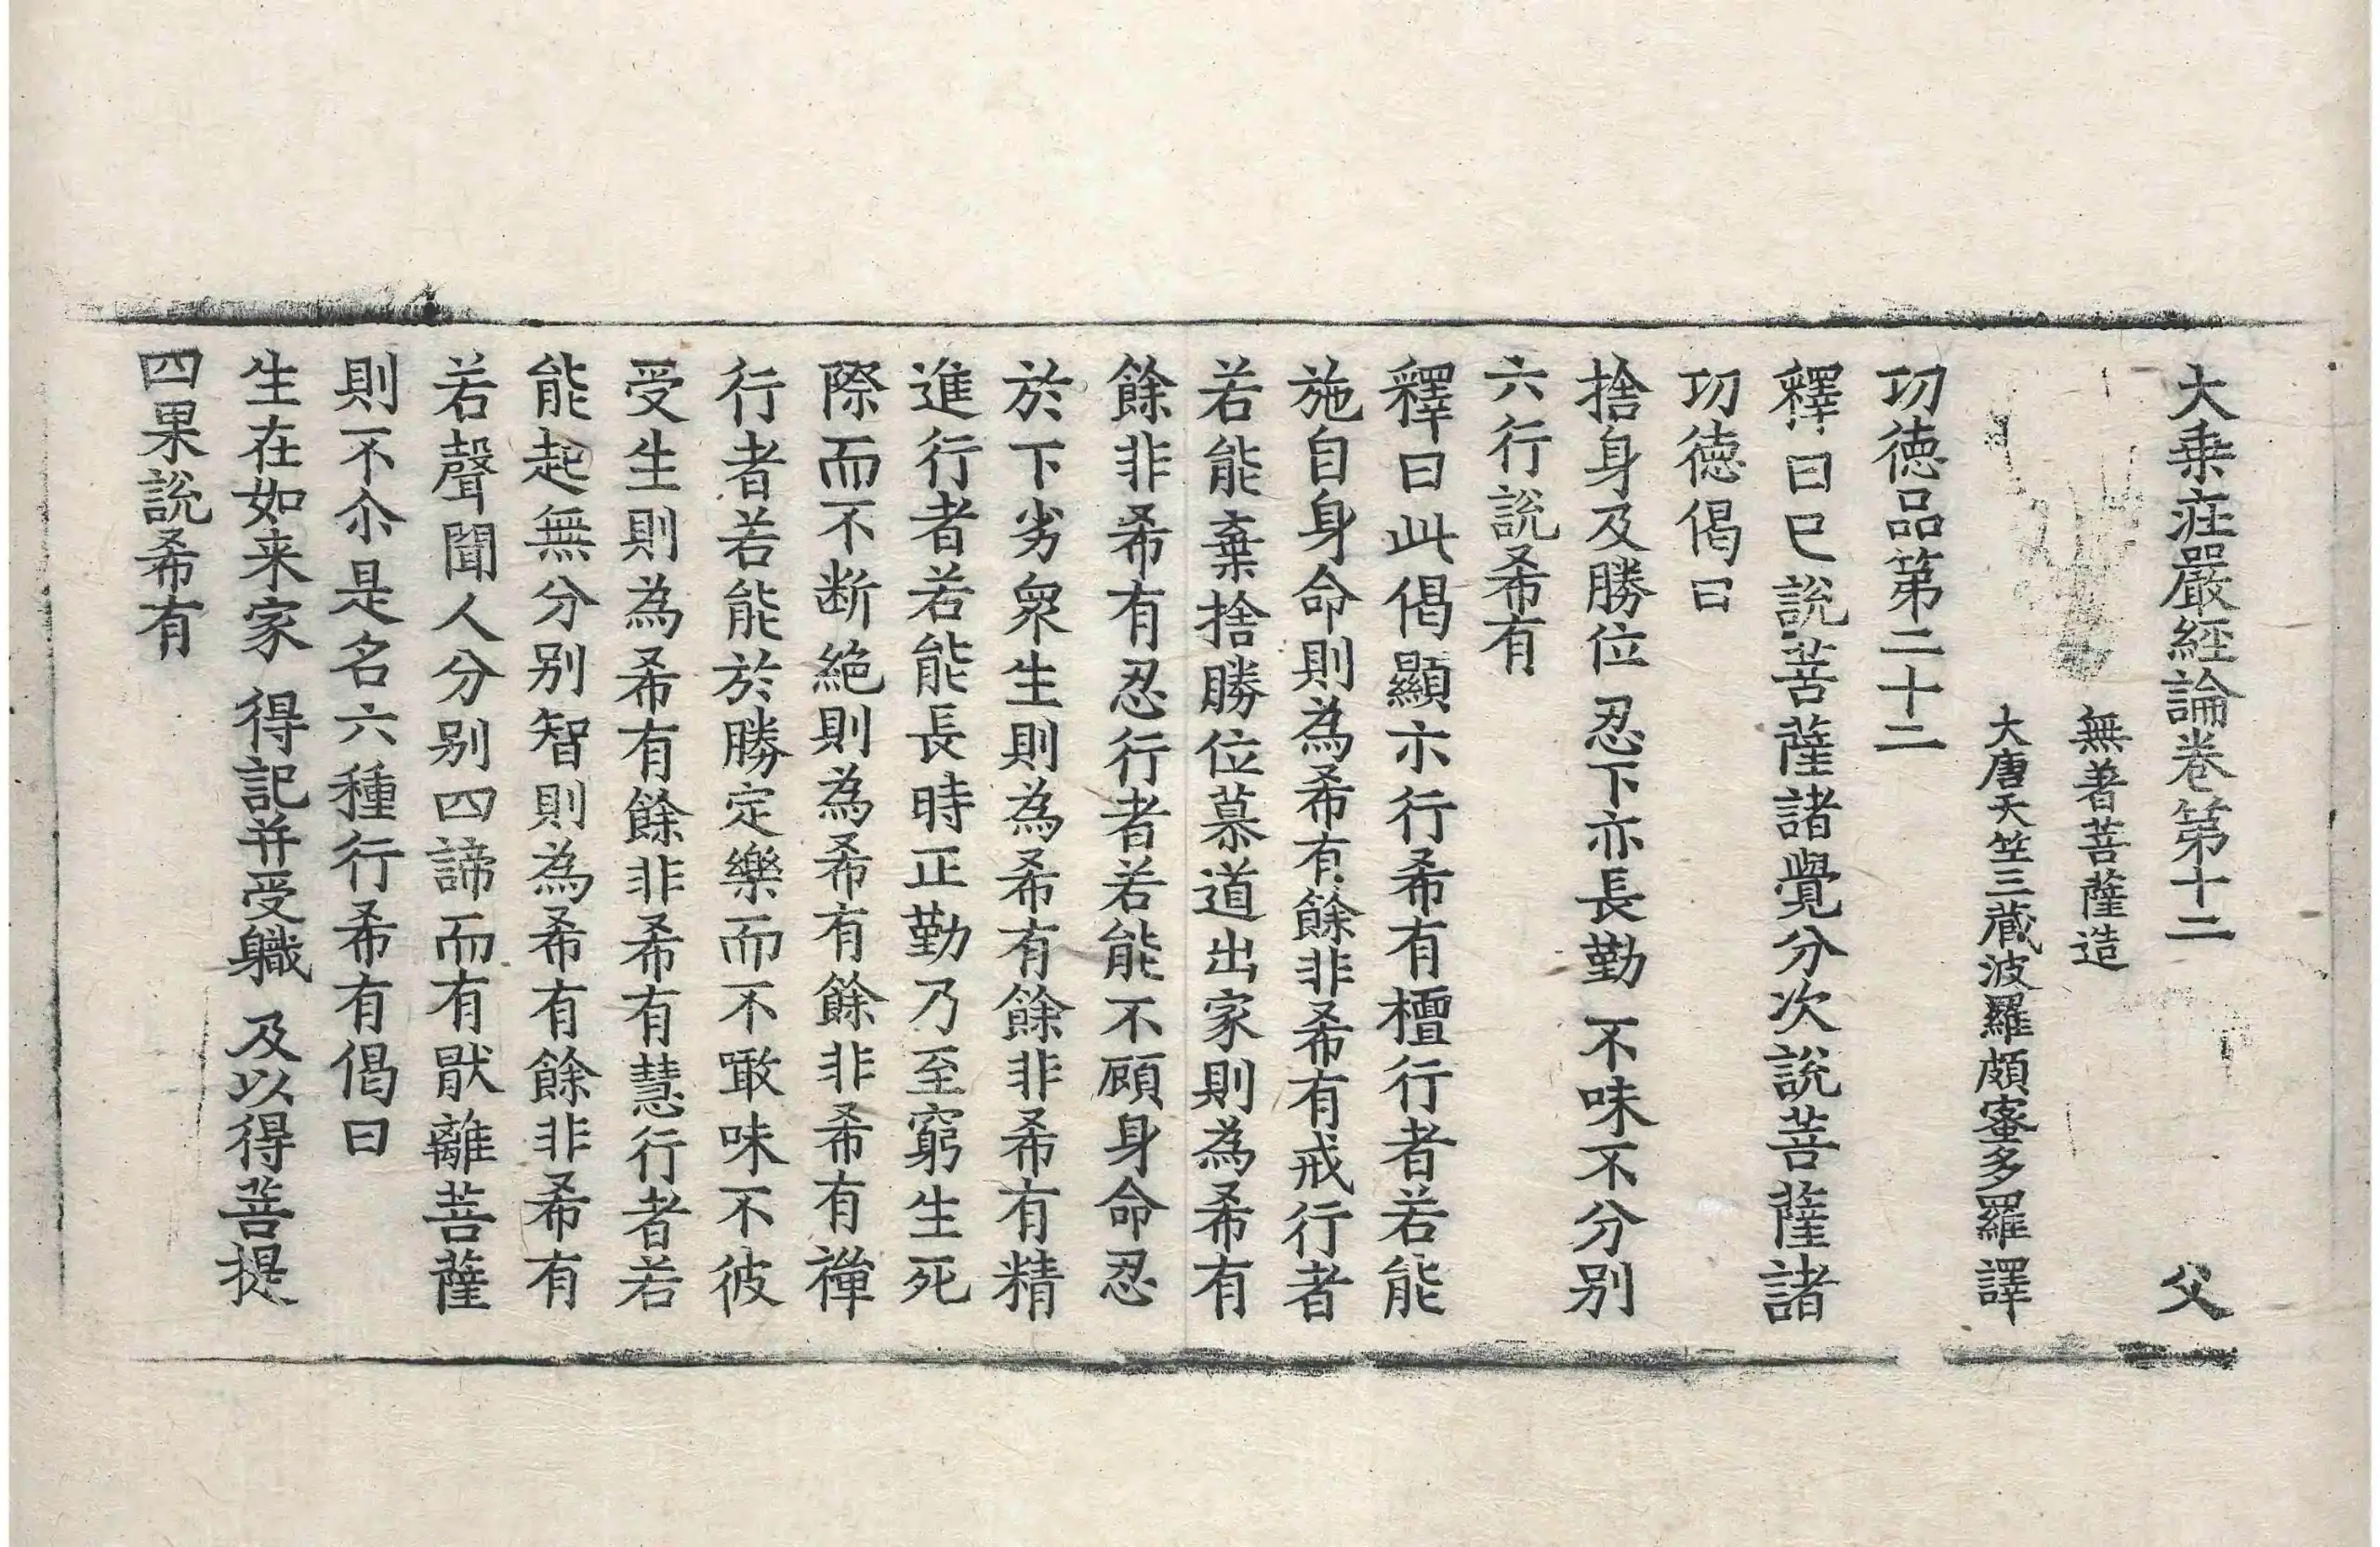 大乗莊嚴經論卷第十二 父
無著菩薩造
大唐天竺三蔵波羅頗蜜多羅譯
功徳品第二十二
釋曰巳說菩薩諸覺分次說菩薩諸
功徳偈曰
捨身及勝位 忍下亦長勤 不味不分别
六行說希有
釋曰此偈顯示行希有檀行者若能
施自身命則為希有餘非希有戒行者
若能棄捨勝位慕道出家則為希有
餘非希有忍行者若能不顧身命忍
於下劣衆生則為希有餘非希有精
進行者若能長時正勤乃至窮生死
際而不断絶則為希有餘非希有禪
行者若能於勝定樂而不噉味不彼
受生則為希有餘非希有慧行者若
能起無分别智則為希有餘非希有
若聲聞人分别四諦而有猒離菩薩
則不尒是名六種行希有偈曰
生在如来家 得記并受軄 及以得菩提
四果說希有